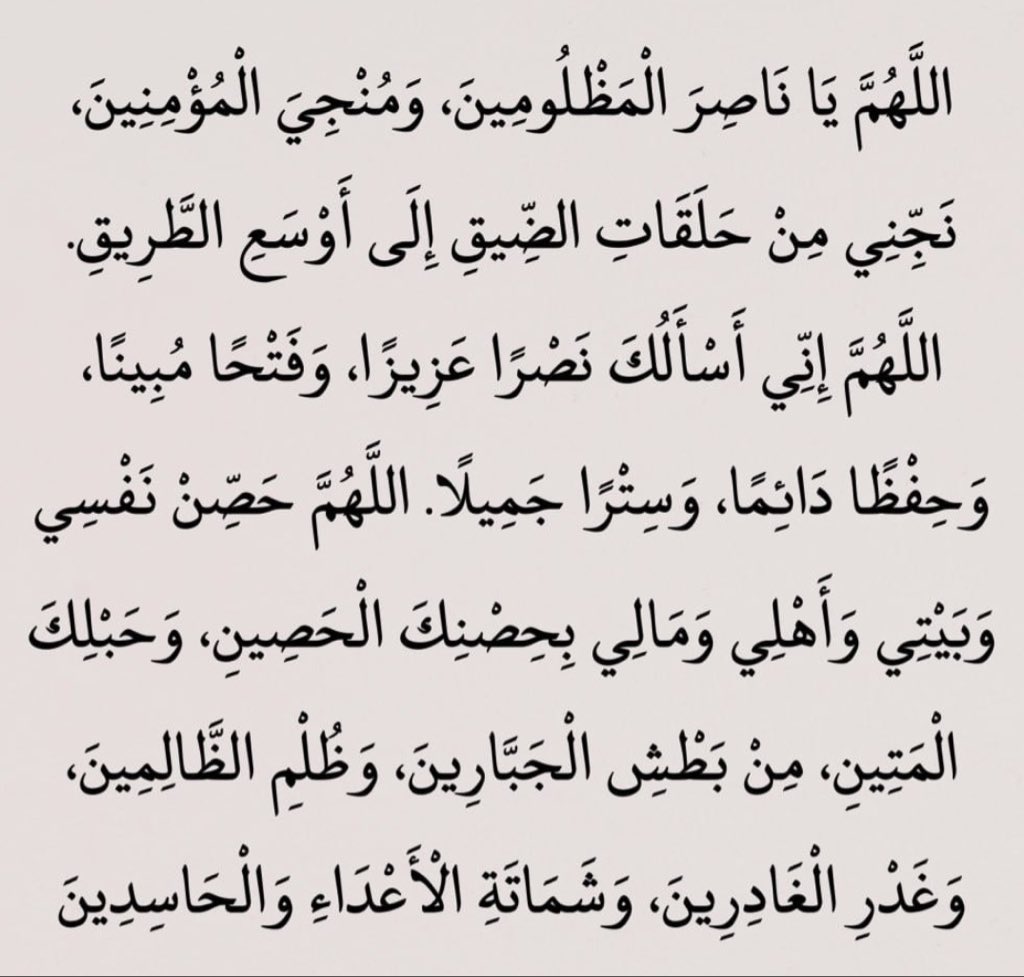 اللَّهُمَّ يَا نَاصِرَ الْمَظْلُومِينَ، وَمُنْجِيَ الْمُؤْمِنِينَ،
نَجِّنِي مِنْ حَلَقَاتِ الضِّيقِ إِلَى أَوْسَعِ الطَّرِيقِ.
اللَّهُمَّ إِنِّي أَسْأَلُكَ نَصْرًا عَزِيزًا، وَفَتْحًا مُبِينًا،
وَحِفْظًا دَائِمًا، وَسِتْرًا جَمِيلًا. اللَّهُمَّ حَصِّنْ نَفْسِي
وَبَيْتِي وَأَهْلِي وَمَالِي بِحِصْنِكَ الْحَصِينِ، وَحَبْلِكَ
الْمَتِينِ، مِنْ بَطْشِ الْجَبَّارِينَ، وَظُلْمِ الظَّالِمِينَ،
وَغَدْرِ الْغَادِرِينَ، وَشَمَاتَةِ الْأَعْدَاءِ وَالْحَاسِدِينَ